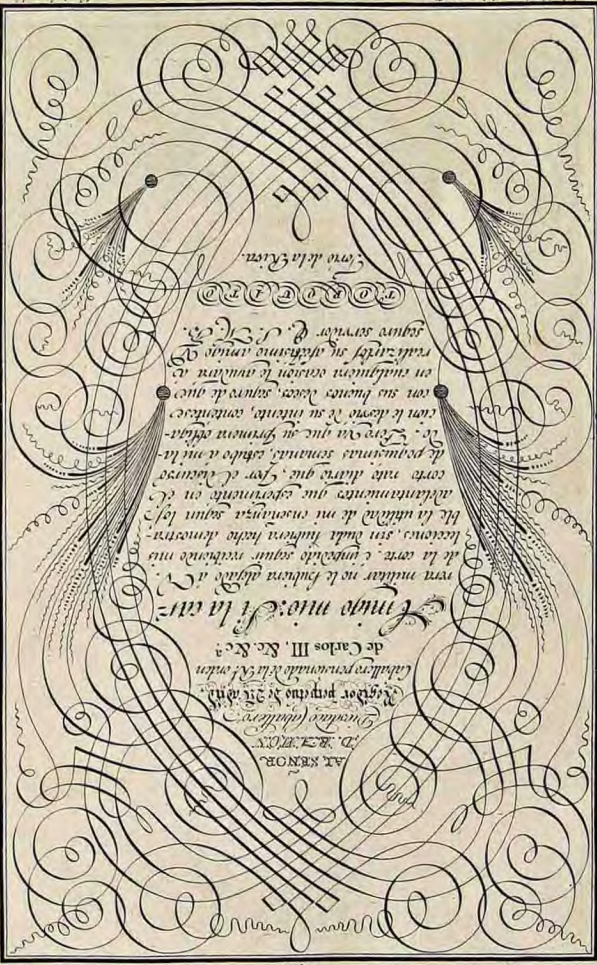 AL SEÑOR
D. RAMON
Durolaco Caballero
Regidor perpetuo de Madrid,
Caballero pensionado de la Rl. orden
de Carlos III, &c. &ca.
Amigo mio: Si la car-
rera militar no le hubiera alejado a V.
de la corte, è impedido seguir recibiendo mis
lecciones, sin duda hubiera hecho demostra-
ble la utilidad de mi enseñanza, segun los
adelantamientos que esperimenté en el
corto rato diario que, por el discurso
de poquisimas semanas, estubo a mi la-
do. Pero ya que su primera obliga-
cion le desvió de su intento, contentese
con sus buenos deseos, seguro de que
en cualquiera ocasion le ayudará á
realizarlos su afectisimo amigo y
seguro servidor Q. S. M. B.
TORQUATO
Torio de la Riva.